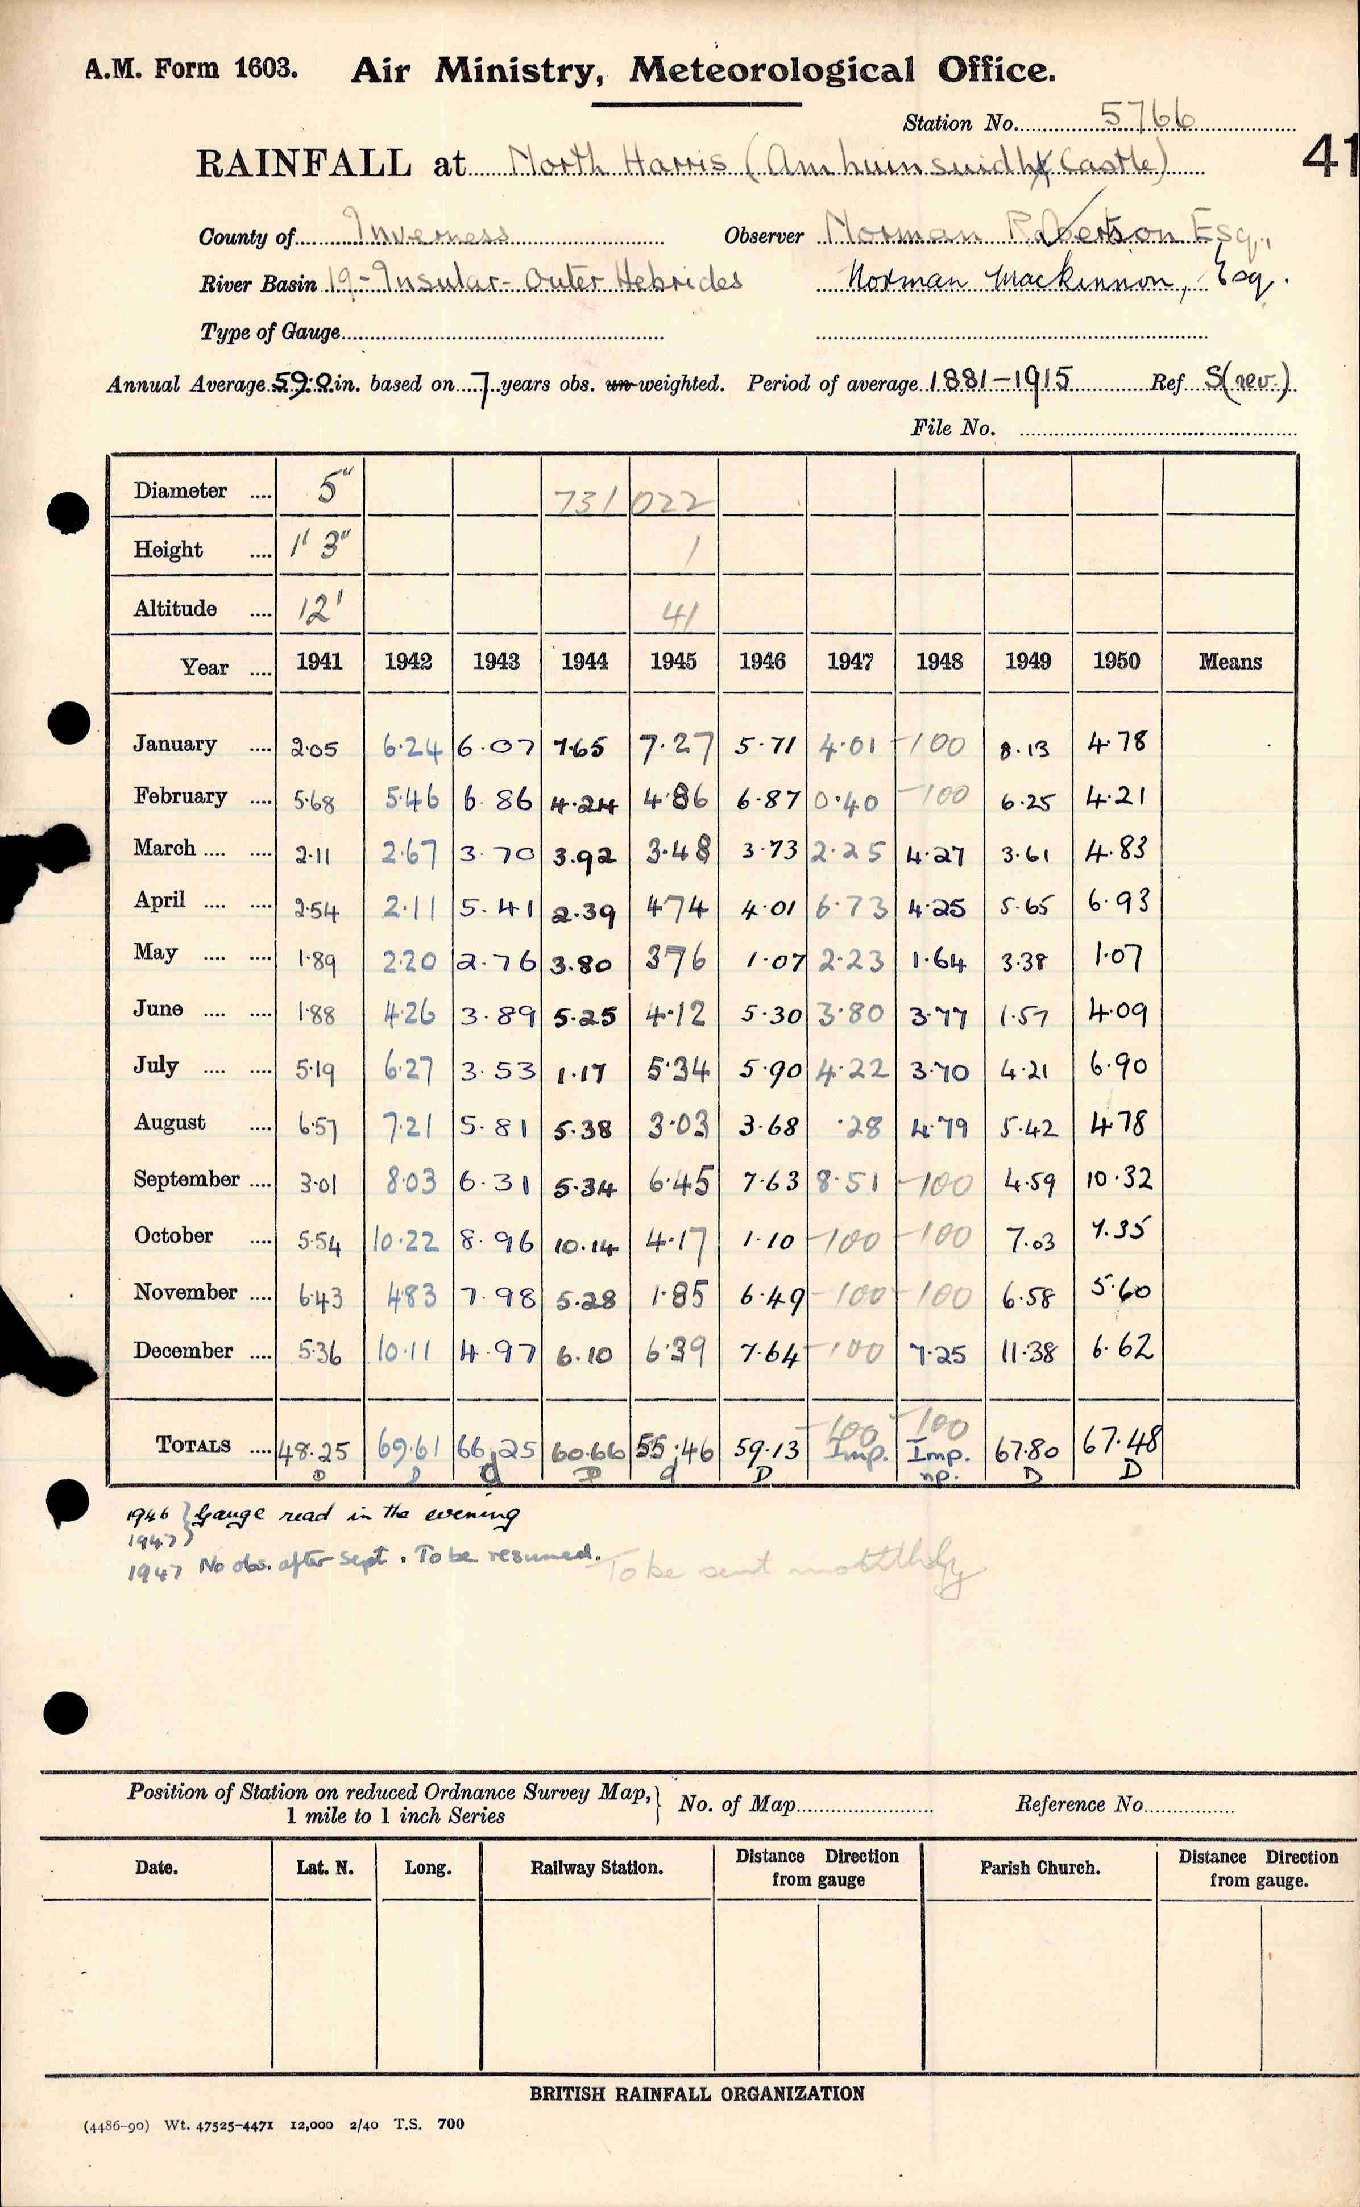 A.M. Form 1603. Air Ministry, Meteorological Office.
Station No. 5766
41
RAINFALL at North Harris (Amhuinsuidh Castle)
County of Inverness Observer Norman Robertson Esq.,
River Basin 19 - Insular - Outer Hebrides Norman Mackinnon, Esq.
Type of Gauge
Annual Average 59.0 in. based on 7 years obs. un-weighted. Period of average 1881-1915 Ref S(rev.)
File No.
Diameter .... 5" 731 022
Height .... 1' 3" 1
Altitude .... 12' 41
Year .... 1941 1942 1943 1944 1945 1946 1947 1948 1949 1950 Means
January .... 2.05 6.24 6.07 7.65 7.27 5.71 4.01 -100 8.13 4.78
February .... 5.68 5.46 6.86 4.24 4.86 6.87 0.40 -100 6.25 4.21
March .... .... 2.11 2.67 3.70 3.92 3.48 3.73 2.25 4.27 3.61 4.83
April .... .... 2.54 2.11 5.41 2.39 4.74 4.01 6.73 4.25 5.65 6.93
May .... .... 1.89 2.20 2.76 3.80 3.76 1.07 2.23 1.64 3.38 1.07
June .... .... 1.88 4.26 3.89 5.25 4.12 5.30 3.80 3.77 1.57 4.09
July .... .... 5.19 6.27 3.53 1.17 5.34 5.90 4.22 3.70 4.21 6.90
August .... 6.57 7.21 5.81 5.38 3.03 3.68 .28 4.79 5.42 4.78
September .... 3.01 8.03 6.31 5.34 6.45 7.63 8.51 -100 4.59 10.32
October .... 5.54 10.22 8.96 10.14 4.17 1.10 -100 -100 7.03 7.35
November .... 6.43 4.83 7.98 5.28 1.85 6.49 -100 -100 6.58 5.60
December .... 5.36 10.11 4.97 6.10 6.39 7.64 -100 7.25 11.38 6.62
-100 -100
TOTALS .... 48.25 69.61 66.25 60.66 55.46 59.13 Imp. Imp. 67.80 67.48
D D d D d D np. D D
1946 } Gauge read in the evening
1947 }
1947 No obs. after Sept. To be resumed. To be sent monthly
Position of Station on reduced Ordnance Survey Map, } No. of Map Reference No.
1 mile to 1 inch Series
Date. Lat. N. Long. Railway Station. Distance Direction from gauge Parish Church. Distance Direction from gauge.
BRITISH RAINFALL ORGANIZATION
(4486-90) Wt. 47525-4471 12,000 2/40 T.S. 700